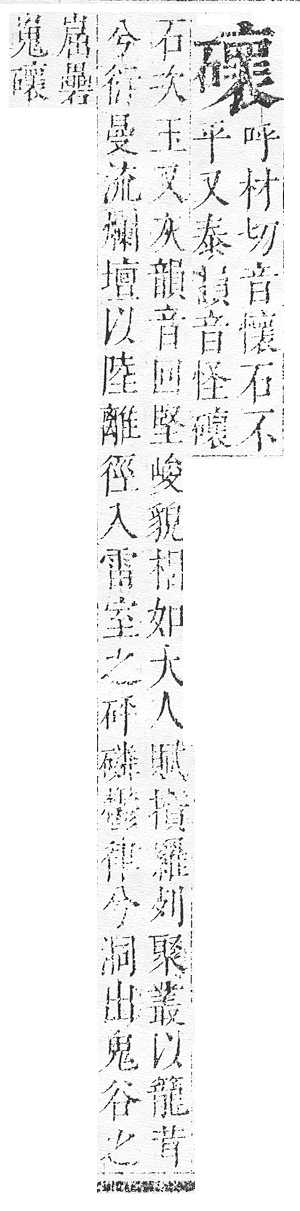 䃶
呼材切音懷石不
平又泰韻音怪䃶
石次玉又灰韻音回堅峻貌相如大人賦攅羅列聚叢以籠茸
兮衍曼流爛壇以陸離徑入雷室之砰磷鬱律兮洞出鬼谷之
崫礨
嵬䃶